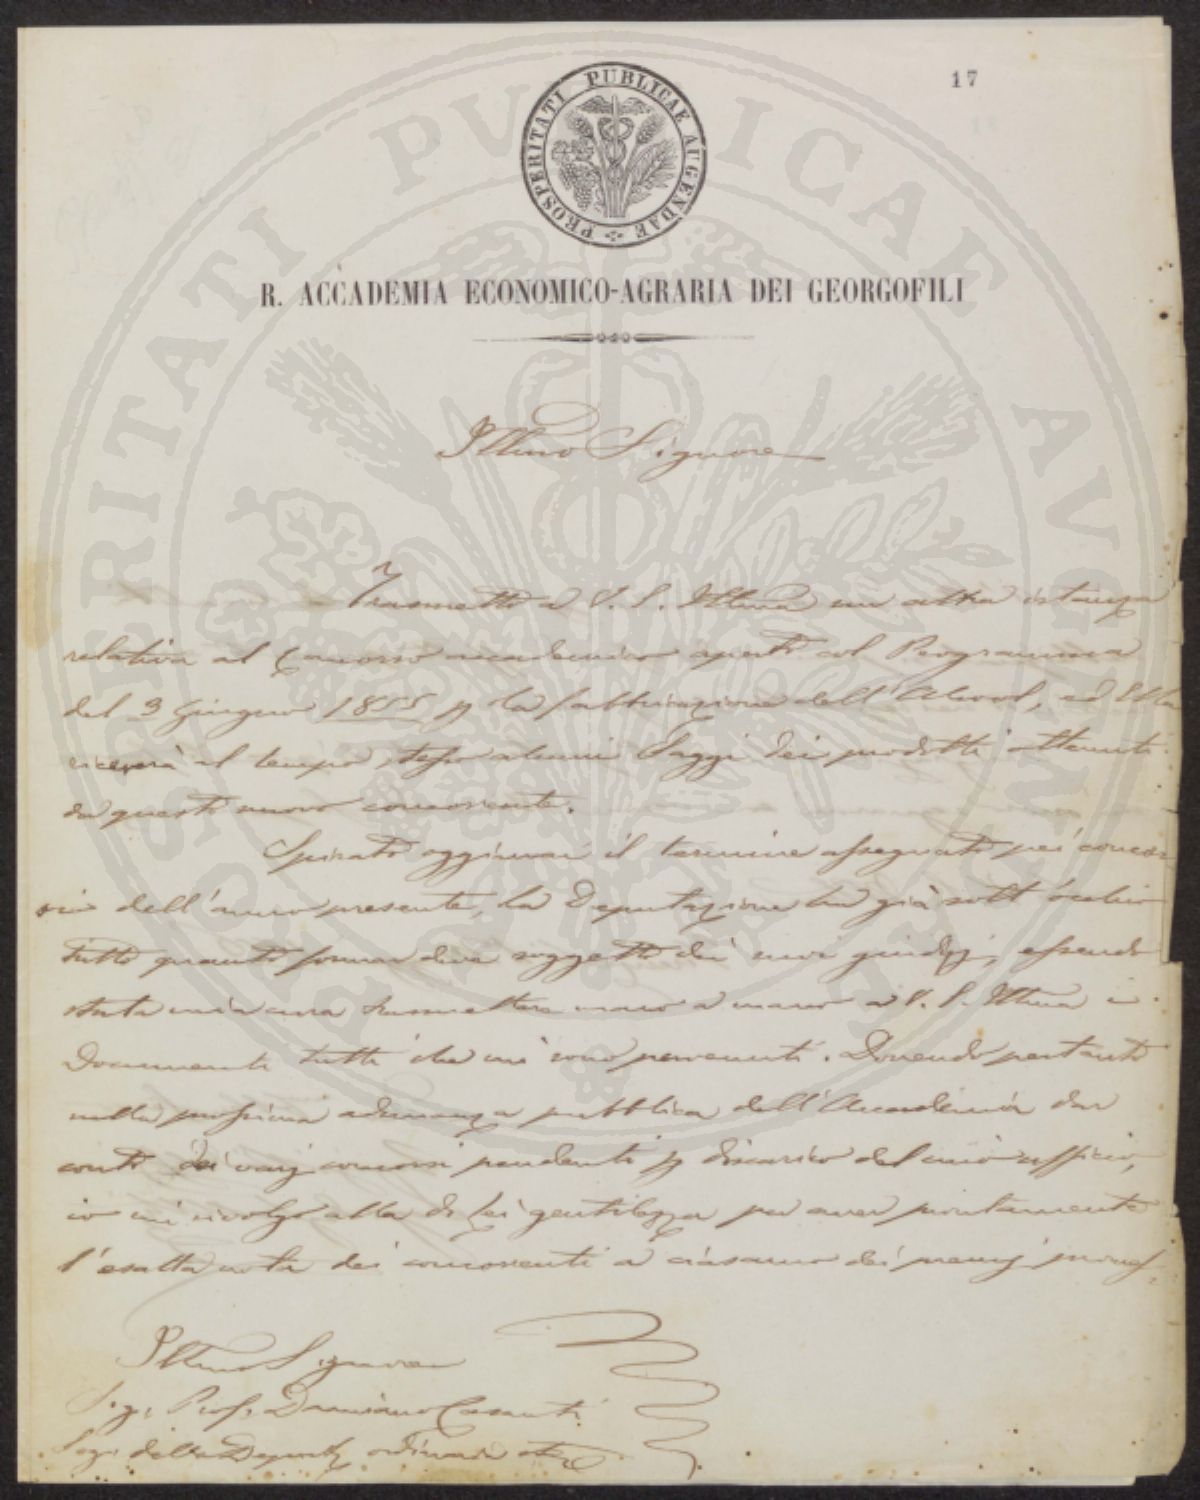 17
PROSPERITATI PUBLICAE AUGENDAE
R. ACCADEMIA ECONOMICO-AGRARIA DEI GEORGOFILI
Illmo Signore
Trasmetto a V. S. Illma un altra istanza
relativa al Concorso accademico aperto col Programma
del 3 Giugno 1855 p la fabbricazione dell'Alcool, ed Ella
riceverà al tempo stesso alcuni Saggi dei prodotti ottenuti
da questo nuovo concorrente.
Spirato oggimai il termine assegnato pei concor
si dell'anno presente, la Deputazione ha già sott'occhio
tutto quanto formar deve soggetto dei suoi giudizj, essendo
stata mia cura trasmettere mano a mano a V. S. Illma i
Documenti tutti che mi sono pervenuti. Dovendo pertanto
nella prossima adunanza pubblica dell'Accademia dar
conto dei varj concorsi pendenti p discarico del mio ufficio,
io mi rivolgo alla di Lei gentilezza per aver prontamente
l'esatta nota dei concorrenti a ciascuno dei premj
Illmo Signore
Sig. Prof. Damiano Casanti
Seg. della Deputaz ordinaria